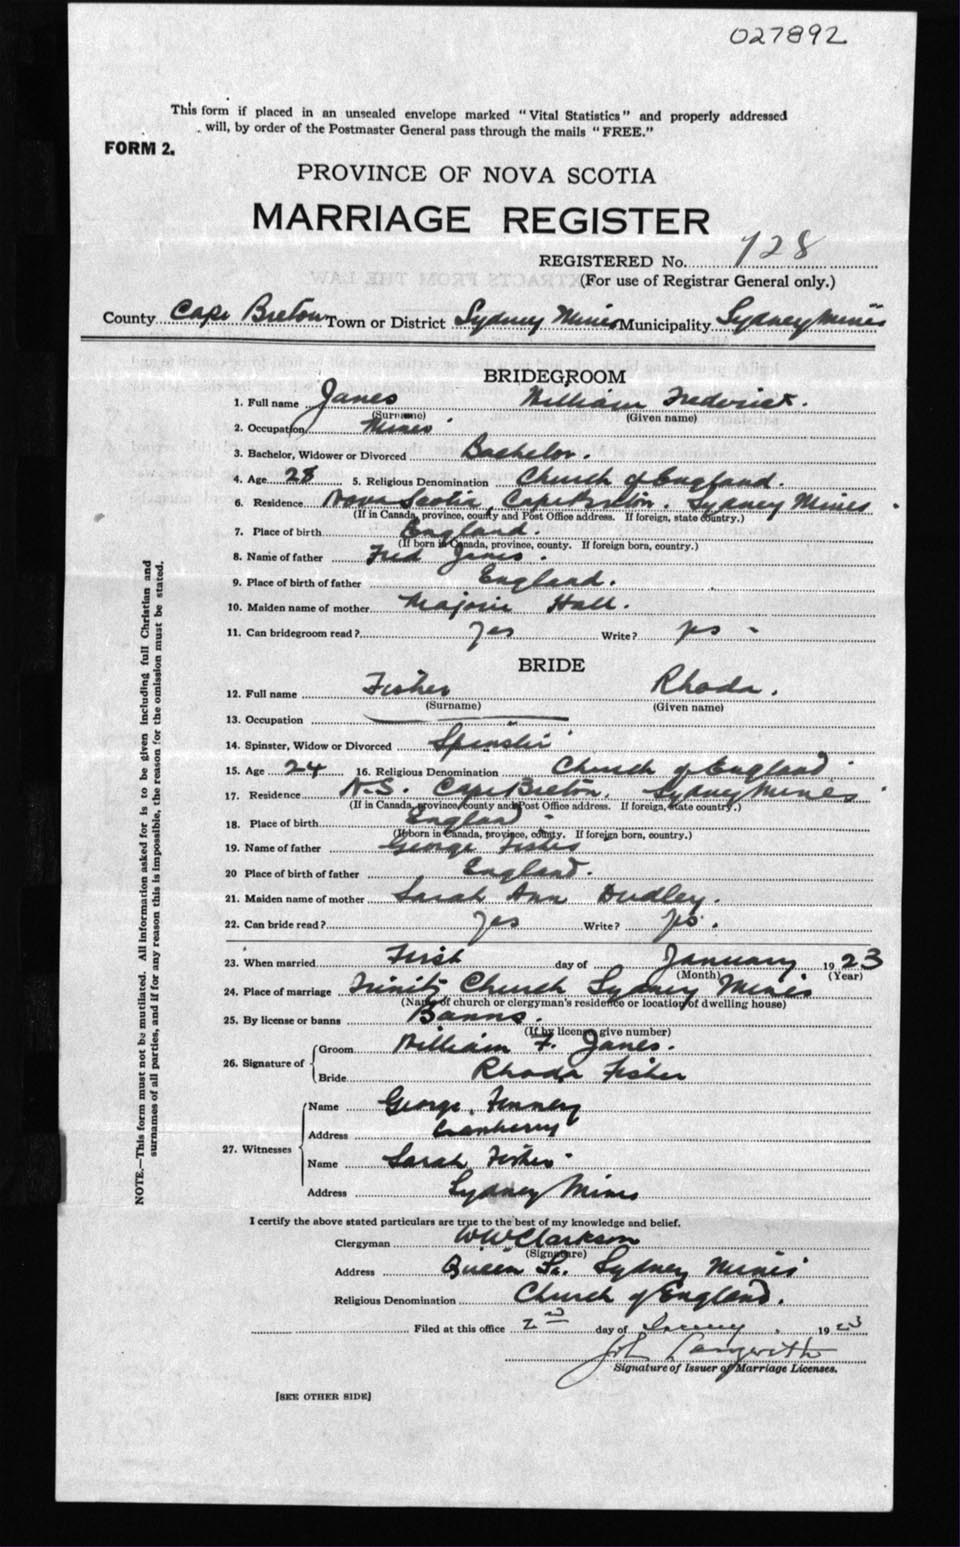 027892
This form if placed in an unsealed envelope marked "Vital Statistics" and properly addressed
will, by order of the Postmaster General pass through the mails "FREE."
FORM 2.
PROVINCE OF NOVA SCOTIA
MARRIAGE REGISTER
REGISTERED No. 728
(For use of Registrar General only.)
County Cape Breton Town or District Sydney Mines Municipality Sydney Mines
BRIDEGROOM
1. Full name Janes William Frederick.
(Surname) (Given name)
2. Occupation Miner
3. Bachelor, Widower or Divorced Bachelor.
4. Age 28 5. Religious Denomination Church of England.
6. Residence Nova Scotia, Cape Breton, Sydney Mines
(If in Canada, province, county and Post Office address. If foreign, state country.)
7. Place of birth England.
(If born in Canada, province, county. If foreign born, country.)
8. Name of father Fred Janes.
9. Place of birth of father England.
10. Maiden name of mother Majorie Hall.
11. Can bridegroom read? yes Write? yes
BRIDE
12. Full name Fisher Rhoda.
(Surname) (Given name)
13. Occupation
14. Spinster, Widow or Divorced Spinster
15. Age 24 16. Religious Denomination Church of England
17. Residence N.S. Cape Breton, Sydney Mines
(If in Canada, province, county and Post Office address. If foreign, state country.)
18. Place of birth England
(If born in Canada, province, county. If foreign born, country.)
19. Name of father George Fisher
20 Place of birth of father England.
21. Maiden name of mother Sarah Ann Dudley.
22. Can bride read? yes Write? yes.
23. When married First day of January 1923
(Month) (Year)
24. Place of marriage Trinity Church Sydney Mines
(Name of church or clergyman's residence or location of dwelling house)
25. By license or banns Banns.
(If by license give number)
26. Signature of Groom William F. Janes.
Bride Rhoda Fisher
27. Witnesses Name George Finney
Address Cranberry
Name Sarah Fisher
Address Sydney Mines
I certify the above stated particulars are true to the best of my knowledge and belief.
Clergyman W W Clarkson
(Signature)
Address Queen St. Sydney Mines
Religious Denomination Church of England.
Filed at this office 2nd day of 1923
John Langwith
Signature of Issuer of Marriage Licenses.
[SEE OTHER SIDE]
NOTE.—This form must not be mutilated. All information asked for is to be given including full Christian and
surnames of all parties, and if for any reason this is impossible, the reason for the omission must be stated.